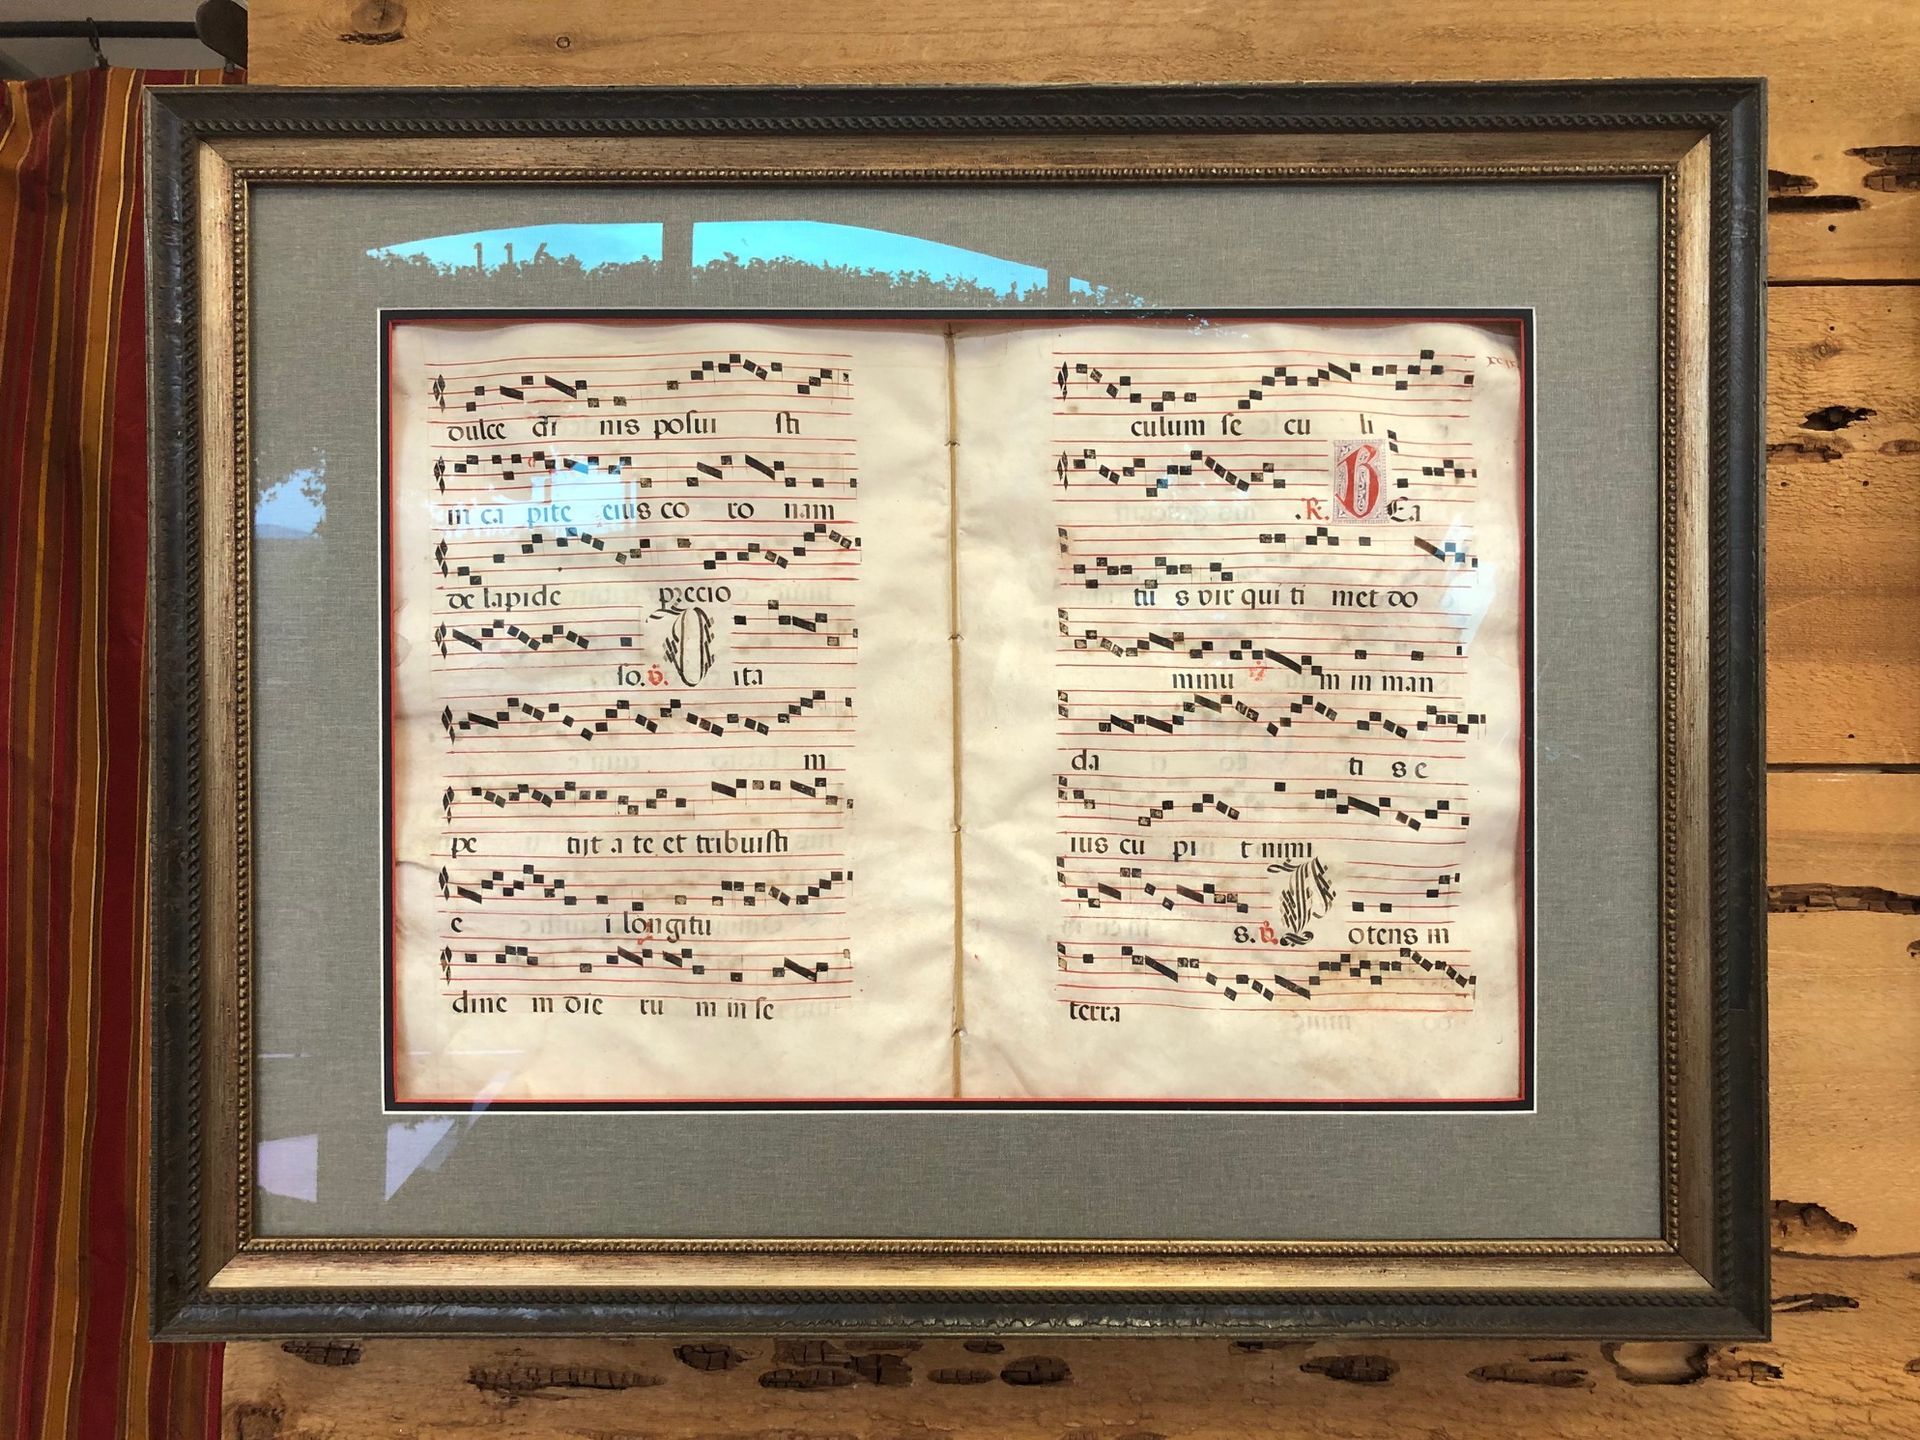 116
dulce di nis posui sti
in ca pite eius co ro nam
de lapide precio
so. V. Vita
in
pe tijt a te et tribuisti
e i longitu
dine in die ru m in se
culum se cu li
. R. BEa
tu s vir qui ti met do
minu m in man
da ti s e
ius cu pi t nimi
s. V. Potens in
terra